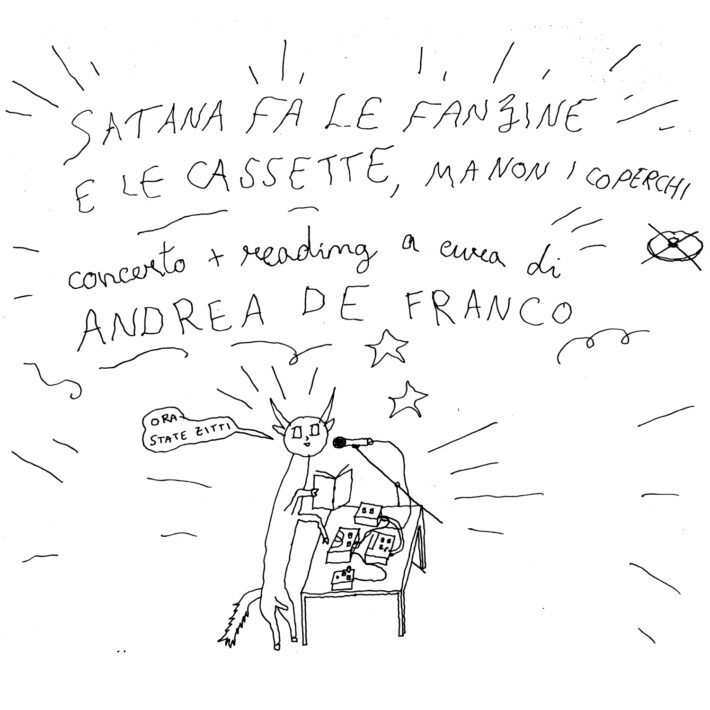 SATANA FA LE FANZINE
E LE CASSETTE, MA NON I COPERCHI
concerto + reading a cura di
ANDREA DE FRANCO
ORA
STATE ZITTI